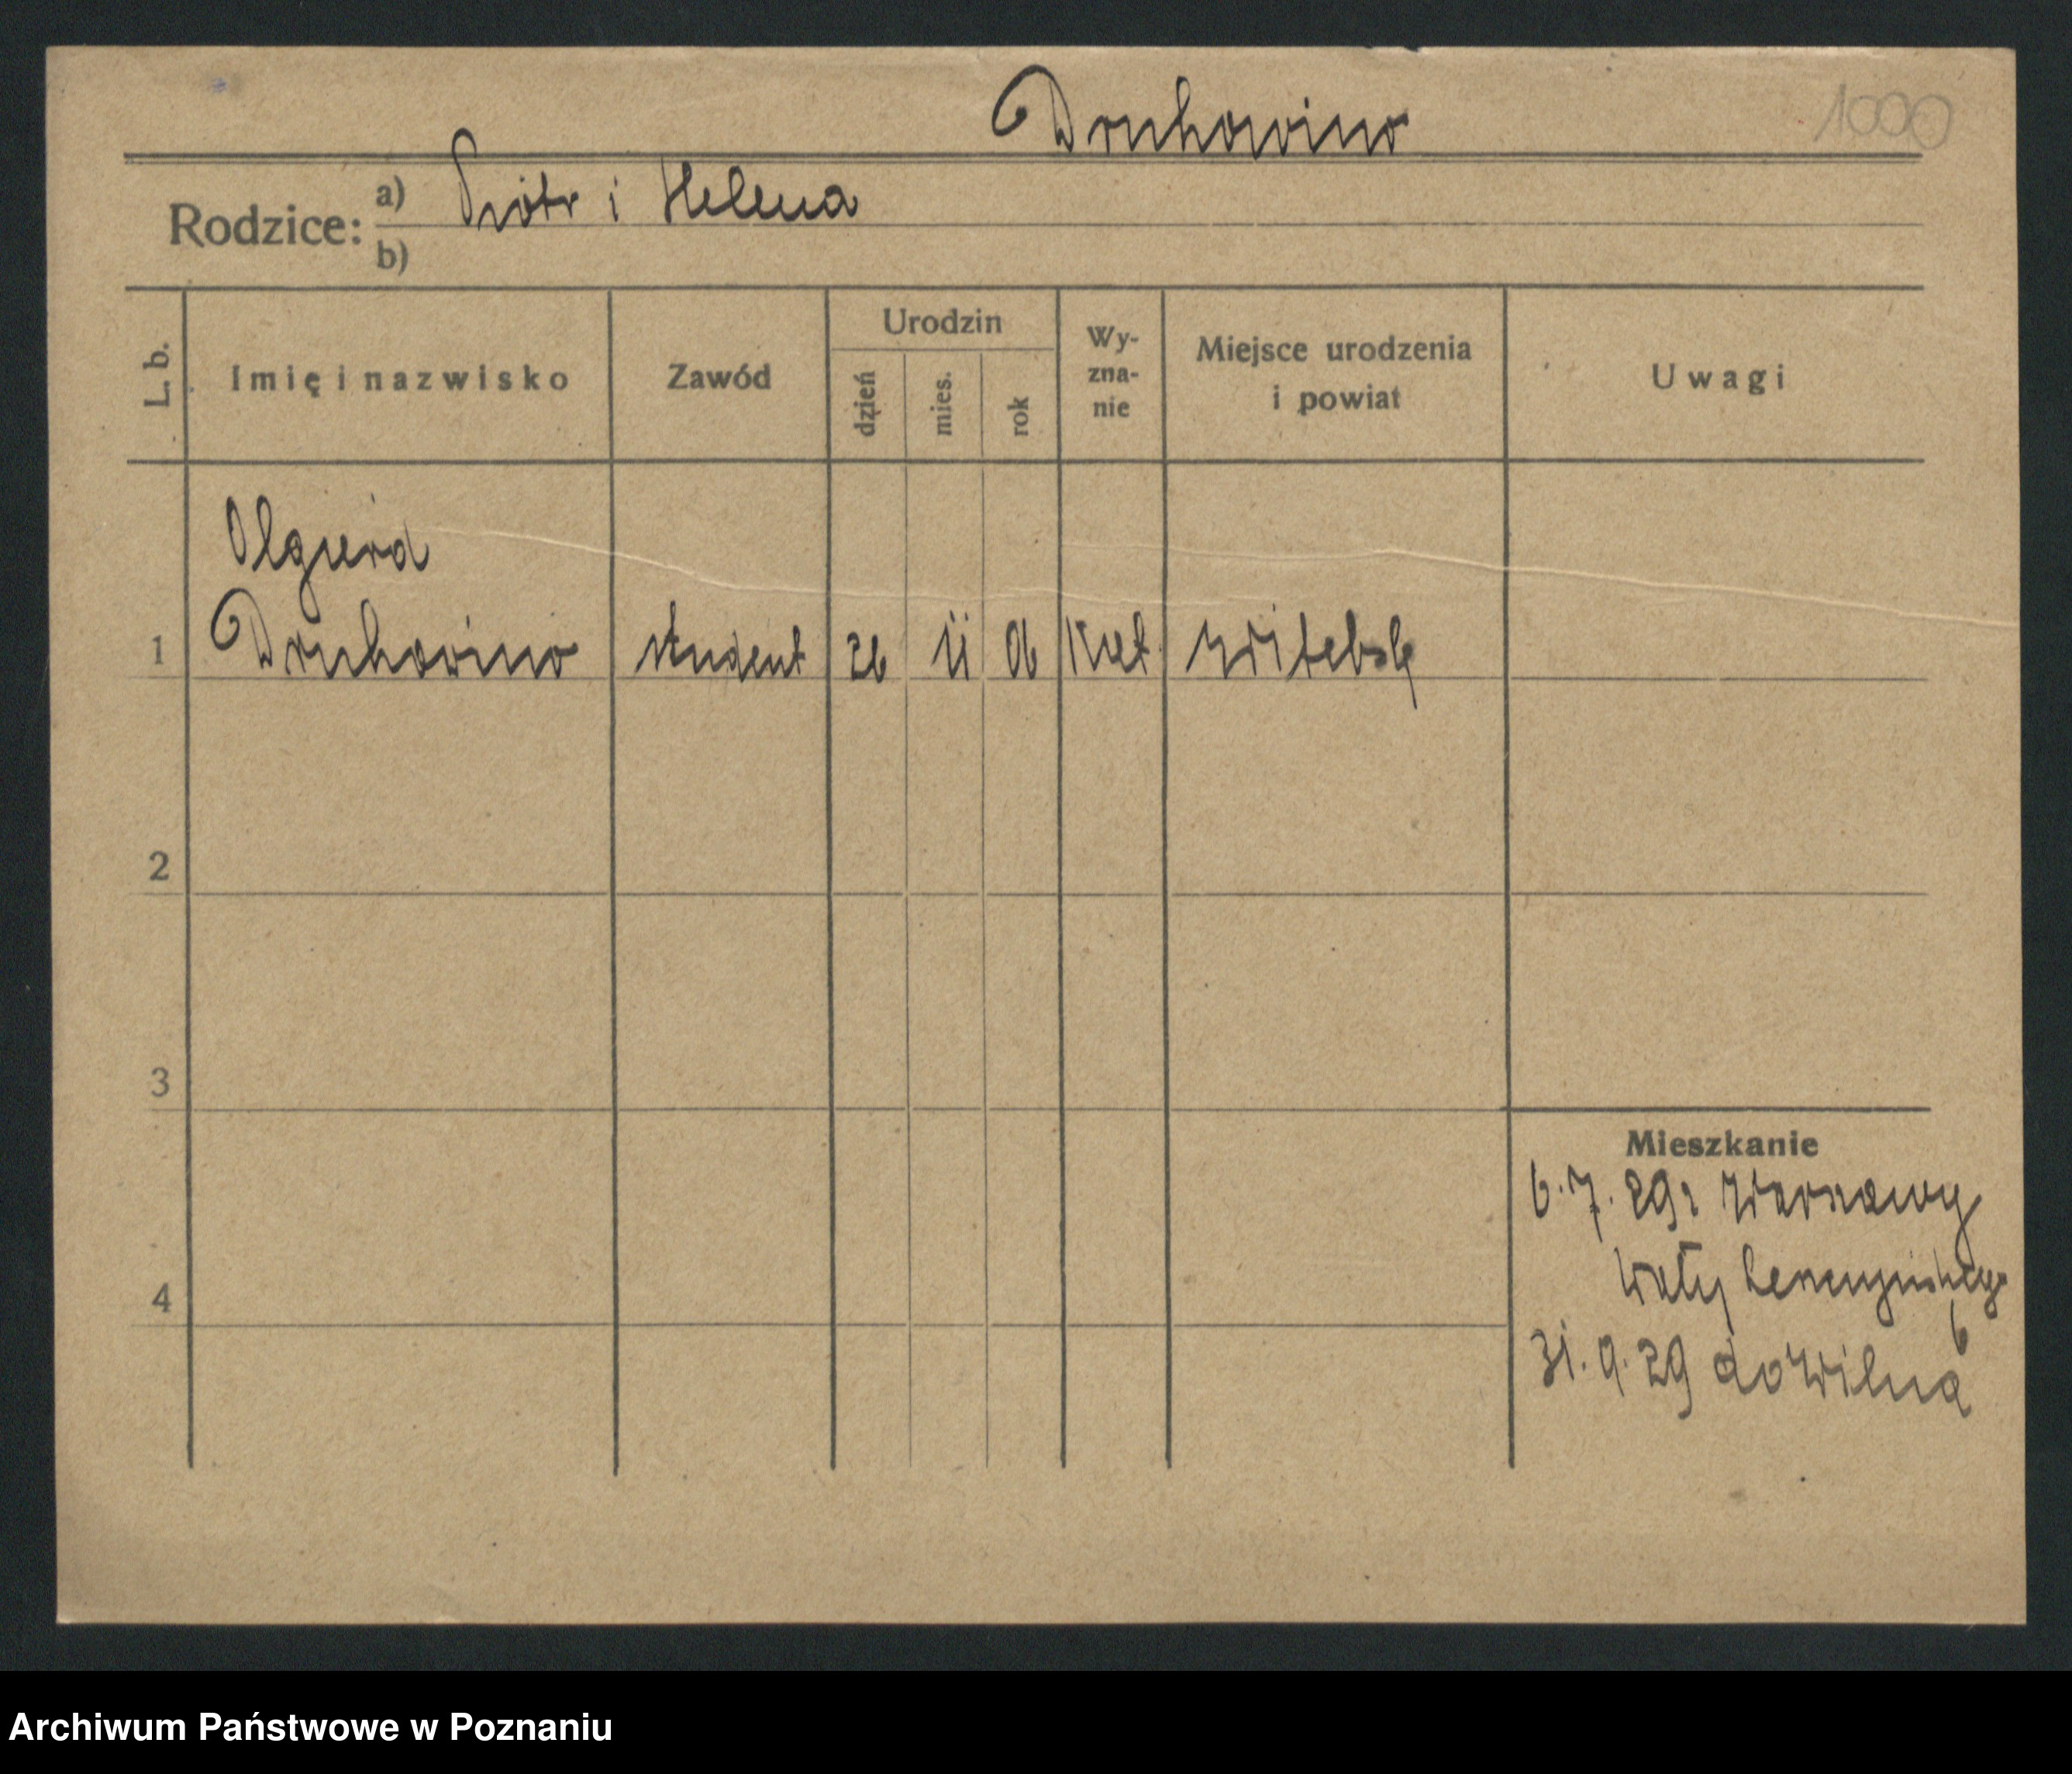 1000
Druhowino
Rodzice:
a) Piotr i Helena
b)
L. b.
Imię i nazwisko
Zawód
Urodzin
dzień
mies.
rok
Wy-
zna-
nie
Miejsce urodzenia
i powiat
Uwagi
Olgierd
1 Druhowino student 26 11 06 kat Witebsk
2
3
4
Mieszkanie
6.7.29 z Warszawy
Wały
6
31.9.29 do Wilna
Archiwum Państwowe w Poznaniu